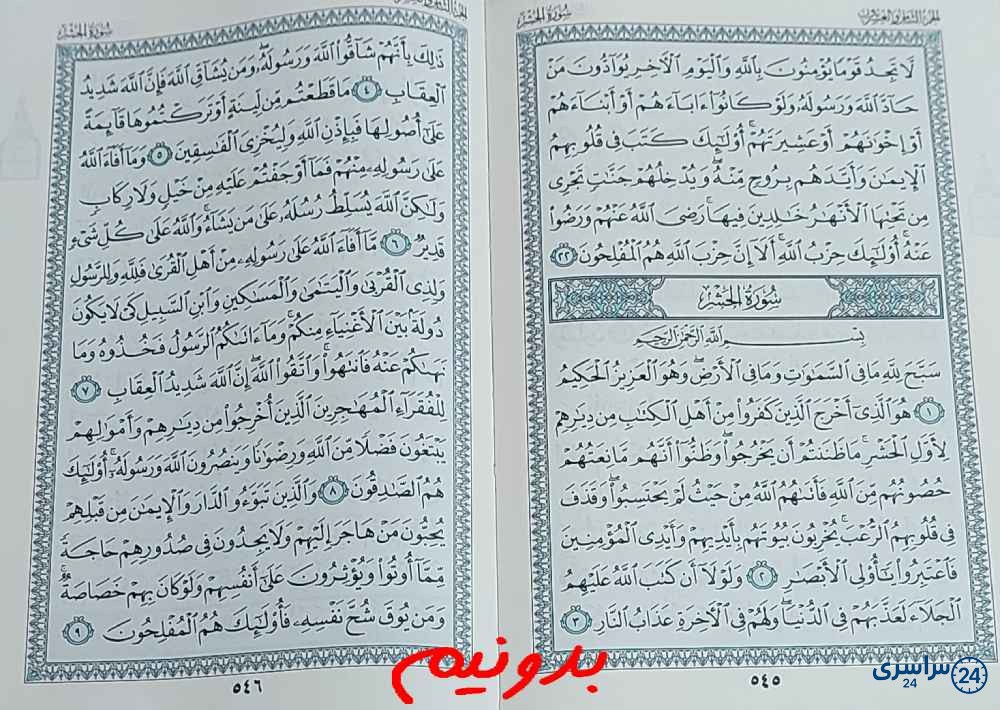 الجزء الثامن والعشرون سورة الحشر
لَّا تَجِدُ قَوْمًا يُؤْمِنُونَ بِٱللَّهِ وَٱلْيَوْمِ ٱلْآخِرِ يُوَآدُّونَ مَنْ
حَآدَّ ٱللَّهَ وَرَسُولَهُۥ وَلَوْ كَانُوٓا۟ ءَابَآءَهُمْ أَوْ أَبْنَآءَهُمْ
أَوْ إِخْوَٰنَهُمْ أَوْ عَشِيرَتَهُمْ ۚ أُو۟لَٰٓئِكَ كَتَبَ فِى قُلُوبِهِمُ
ٱلْإِيمَٰنَ وَأَيَّدَهُم بِرُوحٍ مِّنْهُ ۖ وَيُدْخِلُهُمْ جَنَّٰتٍ تَجْرِى
مِن تَحْتِهَا ٱلْأَنْهَٰرُ خَٰلِدِينَ فِيهَا ۚ رَضِىَ ٱللَّهُ عَنْهُمْ وَرَضُوا۟
عَنْهُ ۚ أُو۟لَٰٓئِكَ حِزْبُ ٱللَّهِ ۚ أَلَآ إِنَّ حِزْبَ ٱللَّهِ هُمُ ٱلْمُفْلِحُونَ ٢٢
سُورَةُ الحَشْرِ
بِسْمِ ٱللَّهِ ٱلرَّحْمَٰنِ ٱلرَّحِيمِ
سَبَّحَ لِلَّهِ مَا فِى ٱلسَّمَٰوَٰتِ وَمَا فِى ٱلْأَرْضِ ۖ وَهُوَ ٱلْعَزِيزُ ٱلْحَكِيمُ
١ هُوَ ٱلَّذِىٓ أَخْرَجَ ٱلَّذِينَ كَفَرُوا۟ مِنْ أَهْلِ ٱلْكِتَٰبِ مِن دِيَٰرِهِمْ
لِأَوَّلِ ٱلْحَشْرِ ۚ مَا ظَنَنتُمْ أَن يَخْرُجُوا۟ ۖ وَظَنُّوٓا۟ أَنَّهُم مَّانِعَتُهُمْ
حُصُونُهُم مِّنَ ٱللَّهِ فَأَتَىٰهُمُ ٱللَّهُ مِنْ حَيْثُ لَمْ يَحْتَسِبُوا۟ ۖ وَقَذَفَ
فِى قُلُوبِهِمُ ٱلرُّعْبَ ۚ يُخْرِبُونَ بُيُوتَهُم بِأَيْدِيهِمْ وَأَيْدِى ٱلْمُؤْمِنِينَ
فَٱعْتَبِرُوا۟ يَٰٓأُو۟لِى ٱلْأَبْصَٰرِ ٢ وَلَوْلَآ أَن كَتَبَ ٱللَّهُ عَلَيْهِمُ
ٱلْجَلَآءَ لَعَذَّبَهُمْ فِى ٱلدُّنْيَا ۖ وَلَهُمْ فِى ٱلْآخِرَةِ عَذَابُ ٱلنَّارِ ٣
٥٤٥
الجزء الثامن والعشرون سورة الحشر
ذَٰلِكَ بِأَنَّهُمْ شَآقُّوا۟ ٱللَّهَ وَرَسُولَهُۥ ۖ وَمَن يُشَآقِّ ٱللَّهَ فَإِنَّ ٱللَّهَ شَدِيدُ
ٱلْعِقَابِ ٤ مَا قَطَعْتُم مِّن لِّينَةٍ أَوْ تَرَكْتُمُوهَا قَآئِمَةً
عَلَىٰٓ أُصُولِهَا فَبِإِذْنِ ٱللَّهِ وَلِيُخْزِىَ ٱلْفَٰسِقِينَ ٥ وَمَآ أَفَآءَ ٱللَّهُ
عَلَىٰ رَسُولِهِۦ مِنْهُمْ فَمَآ أَوْجَفْتُمْ عَلَيْهِ مِنْ خَيْلٍ وَلَا رِكَابٍ
وَلَٰكِنَّ ٱللَّهَ يُسَلِّطُ رُسُلَهُۥ عَلَىٰ مَن يَشَآءُ ۚ وَٱللَّهُ عَلَىٰ كُلِّ شَىْءٍ
قَدِيرٌ ٦ مَّآ أَفَآءَ ٱللَّهُ عَلَىٰ رَسُولِهِۦ مِنْ أَهْلِ ٱلْقُرَىٰ فَلِلَّهِ وَلِلرَّسُولِ
وَلِذِى ٱلْقُرْبَىٰ وَٱلْيَتَٰمَىٰ وَٱلْمَسَٰكِينِ وَٱبْنِ ٱلسَّبِيلِ كَىْ لَا يَكُونَ
دُولَةًۢ بَيْنَ ٱلْأَغْنِيَآءِ مِنكُمْ ۚ وَمَآ ءَاتَىٰكُمُ ٱلرَّسُولُ فَخُذُوهُ وَمَا
نَهَىٰكُمْ عَنْهُ فَٱنتَهُوا۟ ۚ وَٱتَّقُوا۟ ٱللَّهَ ۖ إِنَّ ٱللَّهَ شَدِيدُ ٱلْعِقَابِ ٧
لِلْفُقَرَآءِ ٱلْمُهَٰجِرِينَ ٱلَّذِينَ أُخْرِجُوا۟ مِن دِيَٰرِهِمْ وَأَمْوَٰلِهِمْ
يَبْتَغُونَ فَضْلًا مِّنَ ٱللَّهِ وَرِضْوَٰنًا وَيَنصُرُونَ ٱللَّهَ وَرَسُولَهُۥٓ ۚ أُو۟لَٰٓئِكَ
هُمُ ٱلصَّٰدِقُونَ ٨ وَٱلَّذِينَ تَبَوَّءُو ٱلدَّارَ وَٱلْإِيمَٰنَ مِن قَبْلِهِمْ
يُحِبُّونَ مَنْ هَاجَرَ إِلَيْهِمْ وَلَا يَجِدُونَ فِى صُدُورِهِمْ حَاجَةً
مِّمَّآ أُوتُوا۟ وَيُؤْثِرُونَ عَلَىٰٓ أَنفُسِهِمْ وَلَوْ كَانَ بِهِمْ خَصَاصَةٌ ۚ
وَمَن يُوقَ شُحَّ نَفْسِهِۦ فَأُو۟لَٰٓئِكَ هُمُ ٱلْمُفْلِحُونَ ٩
٥٤٦
بدونیم
سراسری 24
24